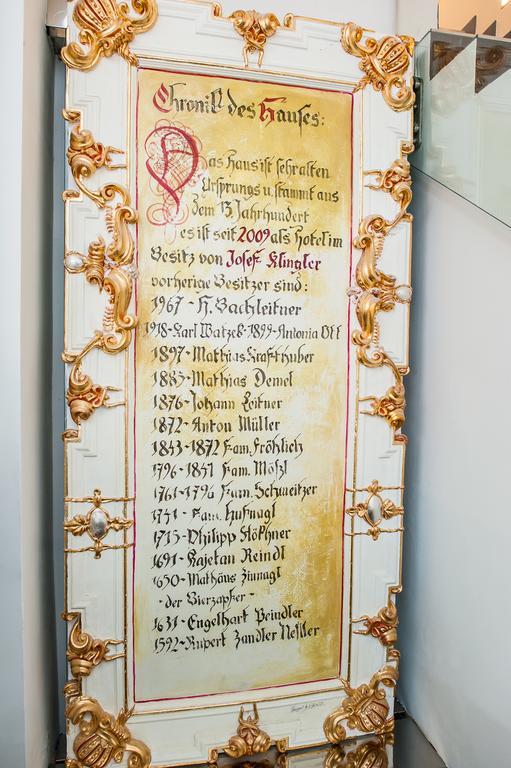 Chronik des Hauses:
Das Haus ist sehr alten
Ursprungs u. stammt aus
dem 13. Jahrhundert
es ist seit 2009 als Hotel im
Besitz von Josef Klingler
vorherige Besitzer sind:
1967 - H. Bachleitner
1918 - Karl Watzek - 1899 - Antonia Ott
1897 - Mathias Krafthuber
1885 - Mathias Demel
1876 - Johann Leitner
1872 - Anton Müller
1843 - 1872 Fam. Fröhlich
1796 - 1841 Fam. Mößl
1761 - 1796 Fam. Schmeitzer
1741 - Fam. Hufnagl
1715 - Philipp Stökhner
1691 - Kajetan Reindl
1650 - Mathäus Zinnagl
- der Bierzapfer -
1631 - Engelhart Peindler
1592 - Rupert Zandler